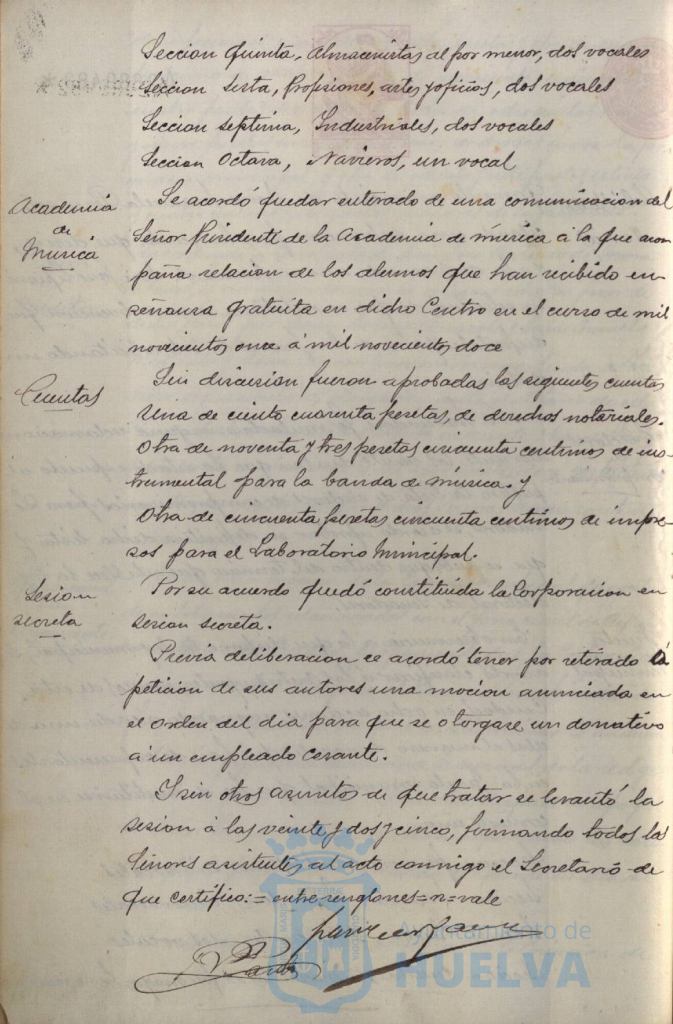 Seccion quinta, Almacenistas al por menor, dos vocales
Seccion sesta, Profesiones, artes y oficios, dos vocales
Seccion septima, Industriales, dos vocales
Seccion Octava, Navieros, un vocal
Academia
de
Musica
Se acordó quedar enterado de una comunicacion del
Señor Presidente de la Academia de música á la que acom
paña relacion de los alumnos que han recibido en-
señansa gratuita en dicho Centro en el curso de mil
novecientos once á mil novecientos doce
Cuentas
Sin discusion fueron aprobadas las siguientes cuentas
Una de ciento cuarenta pesetas, de derechos notariales.
Otra de noventa y tres pesetas cincuenta centimos de ins-
trumental para la banda de música. y
Otra de cincuenta pesetas cincuenta centimos de impre-
sos para el Laboratorio Municipal.
Sesion
secreta
Por su acuerdo quedó constituida la Corporacion en
sesion secreta.
Previa deliberacion se acordó tener por retirado á
peticion de sus autores una mocion anunciada en
el orden del dia para que se otorgase un donativo
á un empleado cesante.
Y sin otros asuntos de que tratar se levantó la
sesion á las veinte y dos y cinco, firmando todos los
Señores asistentes al acto conmigo el Secretario de
que certifico:= entre renglones = n = vale
Ayuntamiento de
HUELVA